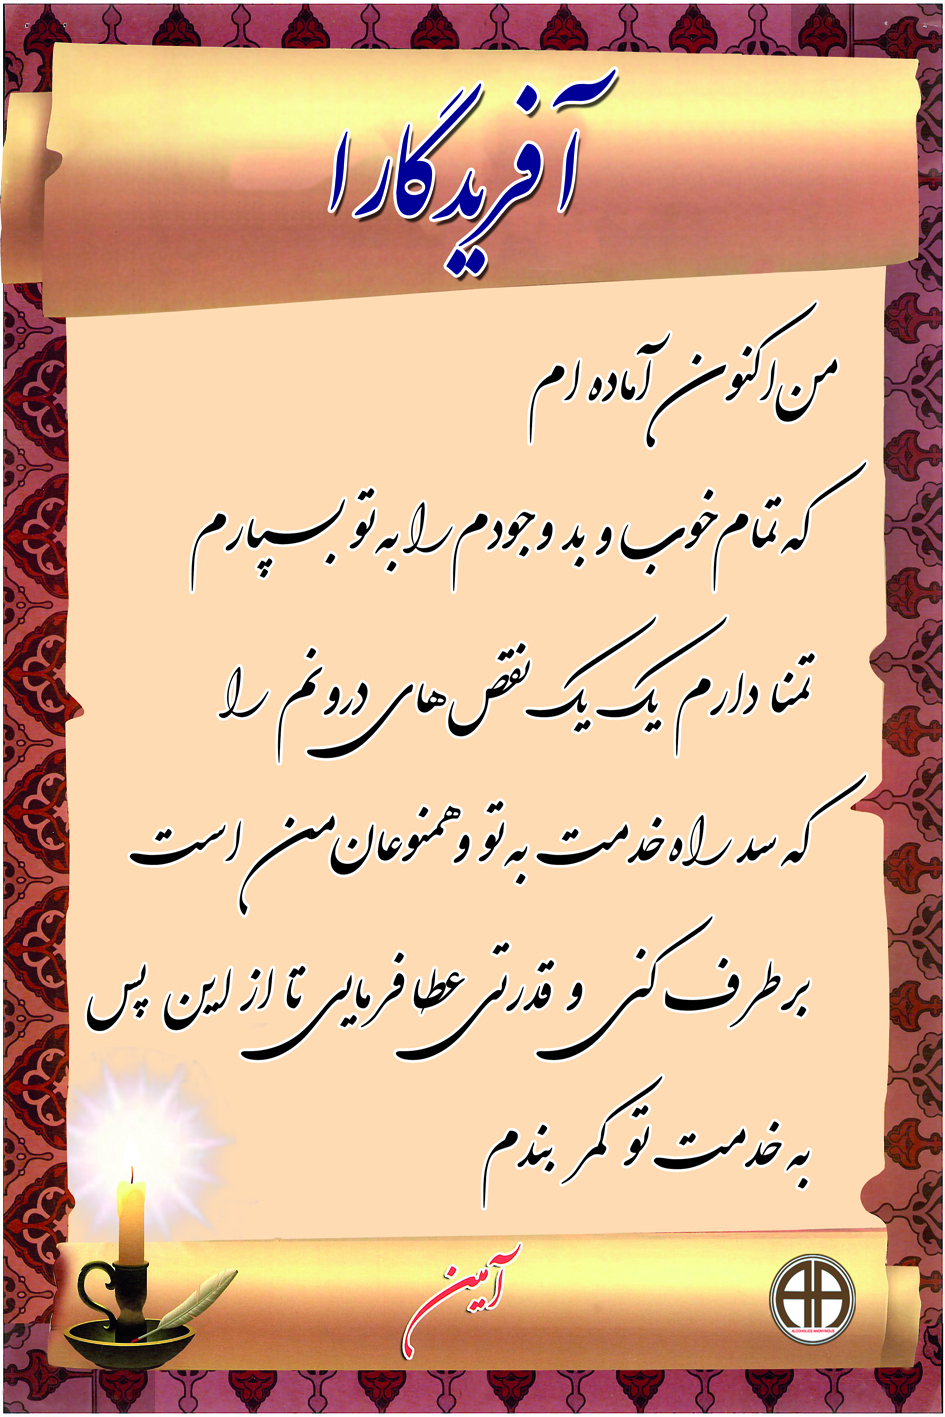 آفریدگارا
من اکنون آماده ام
که تمام خوب و بد وجودم را به تو بسپارم
تمنا دارم یک یک نقص های درونم را
که سد راه خدمت به تو و همنوعان من است
برطرف کنی و قدرتی عطا فرمایی تا از این پس
به خدمت تو کمر بندم
آمین
AA
ALCOHOLICS ANONYMOUS